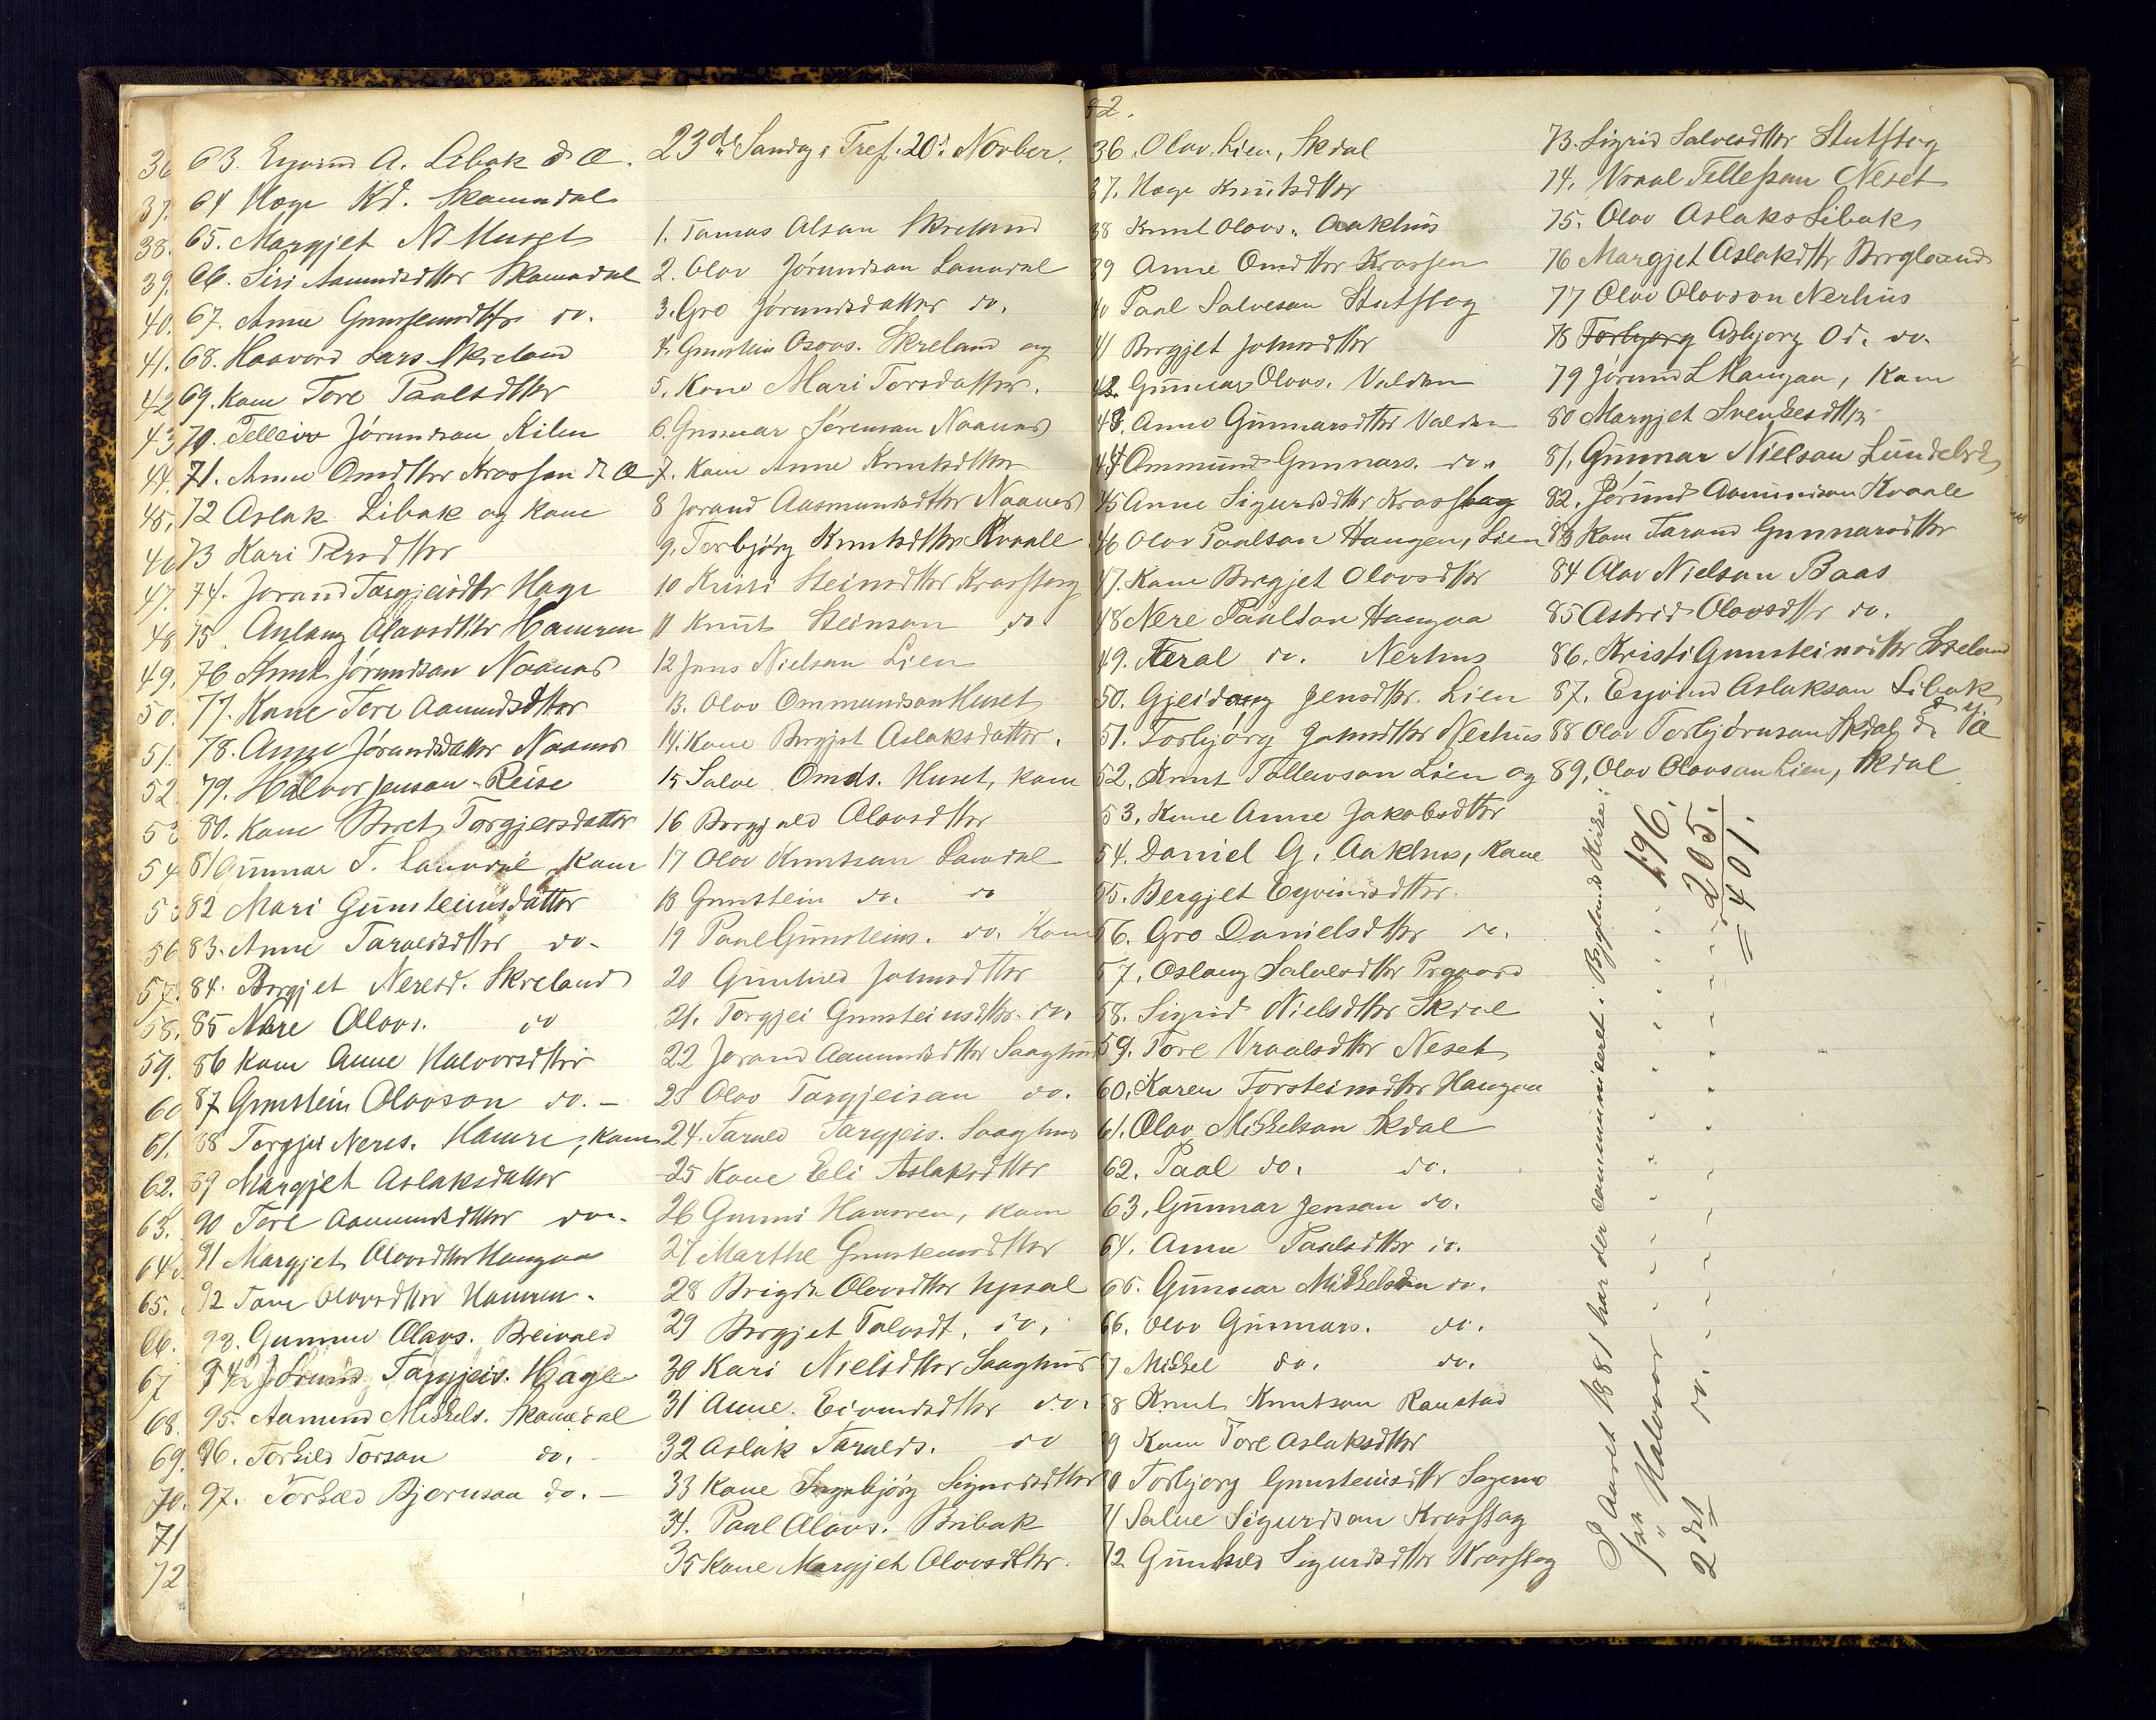 63. Eyvind A. Libak d. Æ.
64 Hæge Kd. Skamedal
65. Margjet Nd Huset
66. Siri Aamundsdtter Skamedal
67. Anne Gunsteinsdtter do.
68. Haavord Lars. Skreland
69. Kone Tore Paalsdtter
70. Telleiv Jörundson Kilen
71. Anne Omdtter Krossen d. Æ
72 Aslak Libak og Kone
73 Kari Persdtter
74. Jorand Targjeisdtr Hage
75. Aslaug Olavsdtter Hamren
76 Knut Jörundson Naanes
77. Kone Tore Aamundsdtter
78. Anne Jörundsdatter Naanes
79. Halvor Jenson Reise
80. Kone Boret Torgjersdatter
81 Gunnar T. Lauvdal, Kone
82 Mari Gunsteinsdatter
83. Anne Taraldsdtter do.
84. Borgjet Neresd. Skreland
85 Nere Olavs. do
86 Kone Anne Halvorsdtter
87 Gunstein Olavson do. —
88 Torgjei Neres. Hamre, Kone
89 Margjet Aslaksdatter
90 Tore Aamundsdtter do.
91 Margjet Olavsdtter Haugaa
92 Tone Olavsdtter Hamren.
93. Gunnar Olavs. Breivald
94 Jörund Targjeis. Hage
95. Aamund Mikkels. Skamedal
96. Torkild Torson do.
97. Torkild Bjornson do. —
36
37.
38.
39.
40.
41.
42
43
44.
45.
46
47.
48
49.
50.
51.
52
53
54
55
56
57.
58.
59.
60
61.
62.
63.
64.
65.
66.
67
68.
69.
70.
71
72
23de Sondag e. Tref. 20de Novber.
1. Tomas Olson Skreland
2. Olov Jörundson Lauvdal
3. Gro Jörundsdatter do.
4. Gunstein Osovs. Skreland og
5. Kone Mari Torsdatter.
6. Gunnar Sörenson Naanes
7. Kone Anne Knutsdtter
8 Jorand Aasmundsdtter Naanes
9. Torbjörg Knutsdtter Kvaale
10 Kristi Steinsdtter Krosstog
11 Knut Steinson do
12 Jens Nielson Lien
13. Olov Ommundson Huset
14. Kone Borgjet Aslaksdatter.
15 Salve Omds. Huset, Kone
16 Borgjuld Olovsdtter
17 Olov Knutson Lauvdal
18 Gunstein do. do
19 Paul Gunsteins. do. Kone
20 Gunhild Johnsdtter
21. Torgjei Gunsteinsdtter. do.
22 Jorand Aamundsdtter Saaghus
23 Olov Targjeison do.
24. Tarald Targjeis. Saaghus
25 Kone Eli Aslaksdtter
26 Gunni Hamren, Kone
27 Marthe Gunsteinsdtter
28 Brigit Olovsdtter Upsal
29 Borgjet Talvsdt. do.
30 Kari Nielsdtter Saaghus
31 Anne Eivindsdtter do.
32 Aslak Taralds. do
33 Kone Ingebjörg Sigurdsdtter
34. Paul Olavs. Bribak
35 Kone Margjet Olovsdtter.
82.
36. Olov. Lien, Skdal
37. Hæge Knutsdtter
38 Knut Olovs. Aakhus
39 Anne Omdtter Krossen
40 Paal Salveson Stutstog
41 Borgjet Johnsdtter
42. Gunnar Olovs. Valden
43. Anne Gunnarsdtter Valden
44 Ommund Gunnars. do.
45 Anne Sigurdsdtter Krosstog
46 Olov Paalson Haugen, Lien
47. Kone Borgjet Olovsdtter
48 Nere Paalson Haugaa
49. Teral do. Nerhus
50. Gjeidaug Jensdtter. Lien
51. Torbjörg Johnsdtter Nerhus
52. Knut Tollevson Lien og
53. Kone Anne Jakobsdtter
54. Daniel G. Aakhus, Kone
55. Bergjet Eyvindsdtter.
56. Gro Danielsdtter do.
57. Oslaug Salvesdtter Prgaard
58. Sigrid Nielsdtter Skdal
59. Tore Vraalsdtter Neset
60. Karen Torsteinsdtter Haugen
61. Olov Mikkelson Skdal
62. Paal do. do.
63. Gunnar Jenson do.
64. Anne Paulsdtter do.
65. Gunnar Mikkelson do.
66. Olov Gunnars. do.
67 Mikkel do. do.
68 Knut Knutson Ranstad
69 Kone Tore Aslaksdtter
70 Torbjorg Gunsteinsdtr Sagmo
71 Salve Sigurdson Krosstog
72 Gunhild Sigurdsdtter Krosstog
73. Sigrid Salvesdtter Stutstog
74. Vraal Tellefson Neset
75. Olov Aslaks Libak
76 Margjet Aslaksdtr Borgland
77 Olov Olovson Nerhus
78 Torbjorg Asbjorg Od. do.
79 Jörund L Haugen, Kone
80 Margjet Svenkesdtter
81. Gunnar Nielson Lundebrd
82. Jörund Aamundson Kvaale
83 Kone Tarand Gunnarsdtter
84 Olav Nielson Baas
85 Astrid Olovsdtr do.
86. Kristi Gunsteinsdtter Skreland
87. Eyvind Aslakson Libak d. y.
88 Olov Torbjörnson Skdal d. Æ
89. Olov Olovson Lien, Skdal
I Aaret 1881 har der communiceret i Byglands Kirke:
1ste Halvaar " " " 196.
2det do. - - - 205.
= 401.